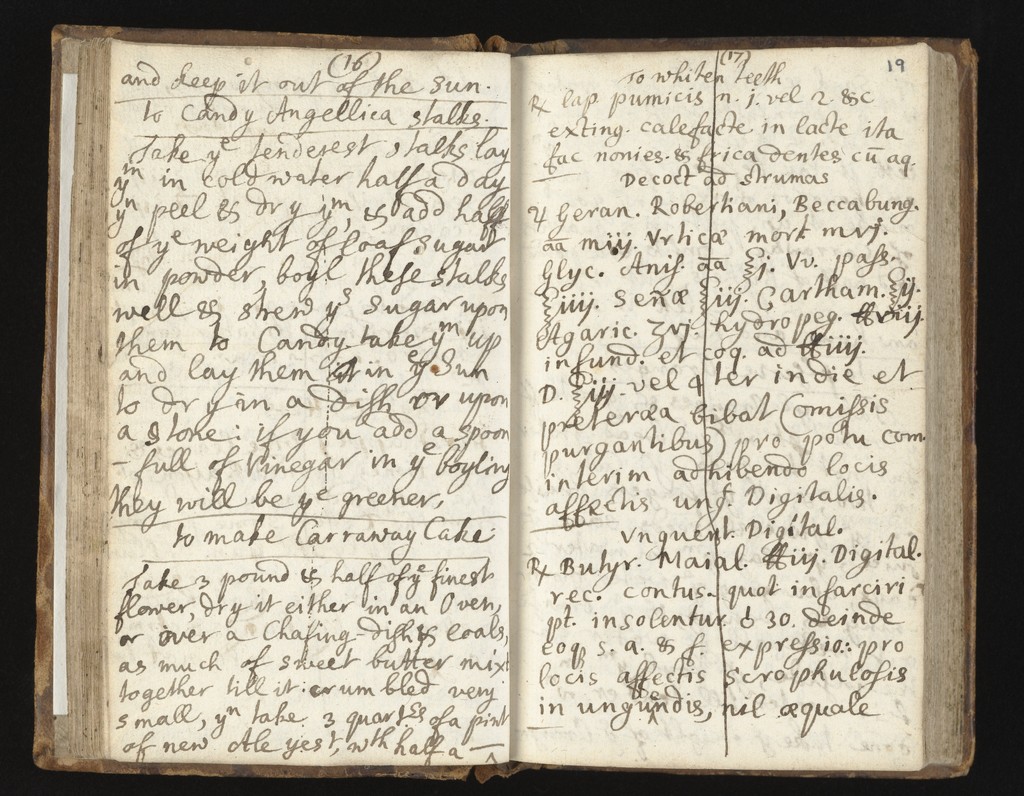 (16)
and keep it out of the Sun.
to Candy Angellica stalks.
Take yᵉ tenderest stalks lay
yᵐ in cold water half a day
yⁿ peel & dry yᵐ, & add half
of yᵉ weight of loaf Sugar
in powder, boyl these stalks
well & strew yˢ Sugar upon
them to Candy take yᵐ up
and lay them in yᵉ Sun
to dry in a dish or upon
a stone: if you add a spoon
- full of Vinegar in yᵉ boyling
they will be yᵉ greener,
to make Carraway Cake
Take 3 pound & half of yᵉ finest
flower, dry it either in an Oven,
or over a Chafing-dish & coals,
as much of sweet butter mixt
together till it crumbled very
small, yⁿ take 3 quartᵉˢ of a pint
of new Ale yest, wth half a —
(17)
19
To whiten teeth
℞ lap. pumicis n. j. vel 2. &c
exting. calefacte in lacte ita
fac nonies. & frica dentes cū aq.
Decoct ad strumas
♃ Geran. Robertiani, Beccabung.
āā miij. Vrticæ mort mvj.
Glyc. Anis. āā ℥j. Vv. pass.
℥iiij. Senæ ℥iij. Cartham. ℥ij.
Agaric. ʒvj. hydropeg. ℔viij.
infund. et coq. ad ℔iiij.
D. ℥iij. vel 4 ter in die et
preteræa bibat (omissis
purgantibus) pro potu com.
interim adhibendo locis
affectis ung. Digitalis.
Vnguent. Digital.
℞ Butyr. Maial. ℔iij. Digital.
rec. contus. quot infarciri
pt. insolentur d 30. deinde
coq. s. a. & f. expressio: pro
locis affectis scrophulosis
in ungūendis, nil æquale